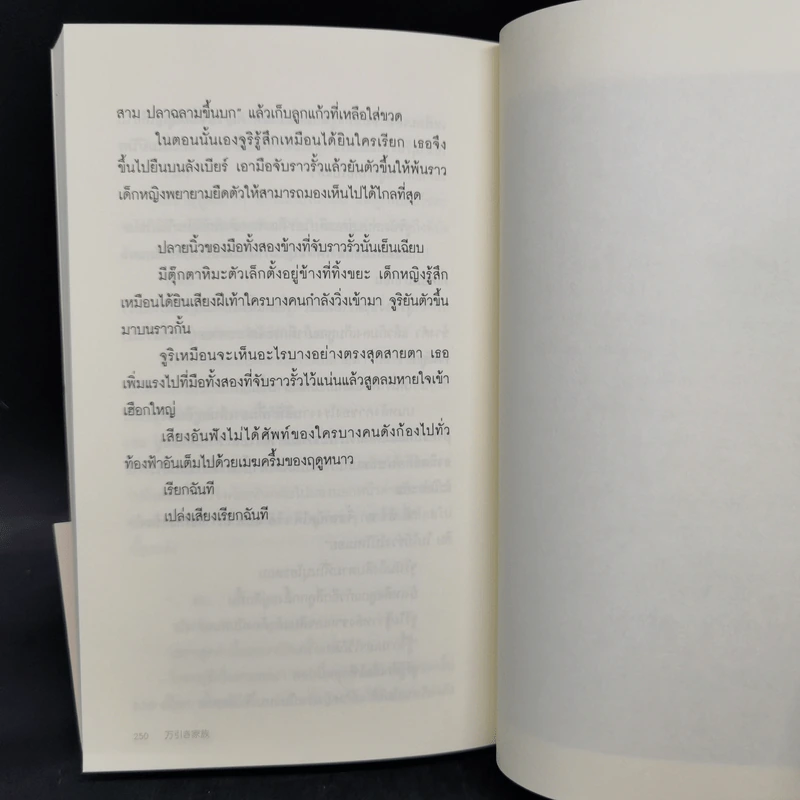 สาม ปลาฉลามขึ้นบก" แล้วเก็บลูกแก้วที่เหลือใส่ขวด
ในตอนนั้นเองจูริรู้สึกเหมือนได้ยินใครเรียก เธอจึง
ขึ้นไปยืนบนลังเบียร์ เอามือจับราวรั้วแล้วยันตัวขึ้นให้พ้นราว
เด็กหญิงพยายามยืดตัวให้สามารถมองเห็นไปได้ไกลที่สุด
ปลายนิ้วของมือทั้งสองข้างที่จับราวรั้วนั้นเย็นเฉียบ
มีตุ๊กตาหิมะตัวเล็กตั้งอยู่ข้างที่ทิ้งขยะ เด็กหญิงรู้สึก
เหมือนได้ยินเสียงฝีเท้าใครบางคนกำลังวิ่งเข้ามา จูริยันตัวขึ้น
มาบนราวกั้น
จูริเหมือนจะเห็นอะไรบางอย่างตรงสุดสายตา เธอ
เพิ่มแรงไปที่มือทั้งสองที่จับราวรั้วไว้แน่นแล้วสูดลมหายใจเข้า
เฮือกใหญ่
เสียงอันฟังไม่ได้ศัพท์ของใครบางคนดังก้องไปทั่ว
ท้องฟ้าอันเต็มไปด้วยเมฆครึ้มของฤดูหนาว
เรียกฉันที
เปล่งเสียงเรียกฉันที
250 万引き家族